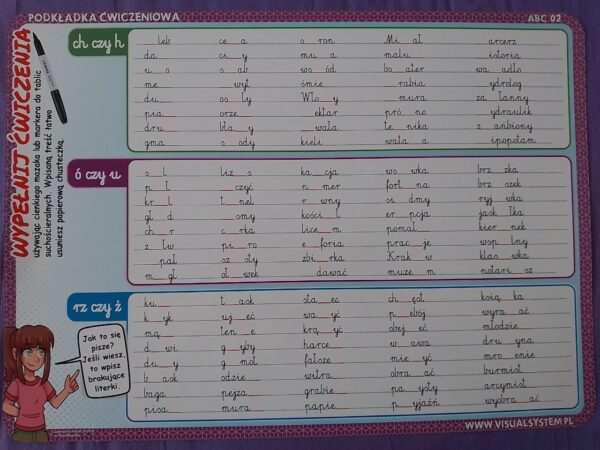 PODKŁADKA ĆWICZENIOWA
ABC 02
WYPEŁNIJ ĆWICZENIA
używając cienkiego mazaka lub markera do tablic
suchościeralnych. Wpisaną treść łatwo
usuniesz papierową chusteczką.
ch czy h
__leb ce__a s__ron Mi__ał __arcerz
da__ ci__y mu__a malu__ __istoria
u__o s__ab ws__ód bo__ater wa__adło
me__ __wyt śmie__ __rabia __ydrolog
du__ os__ły Wło__y __mura za__łanny
pia__ orze__ __ektar pró__no __ydraulik
dru__ bła__y __wała te__nika z__ańbiony
gma__ s__ody kieli__ wata__a __ipopotam
ó czy u
s__l liz__s ka__cja ws__wka brz__zka
p__l __czyć n__mer fort__na brz__szek
kr__l t__nel r__wny si__dmy ryj__wka
gł__d kości__ł er__pcja jask__łka
ch__r c__rka lice__m pomal__ kier__nek
ż__łw pi__ro e__foria prac__je wsp__lny
__pał sz__sty zbi__rka Krak__w klas__wka
m__gł oł__wek __dawać muze__m notari__sz
rz czy ż
ku__ t__ask sta__eć ch__ęst ksią__ka
k__yk uj__eć wa__yć p__ebój wyra__ać
mą__ ten__e krą__yć obej__eć młodzie__
d__wi g__yby harce__ w__awa dru__yna
du__y g__mot fałsze__ mie__yć mro__enie
b__ask odzie__ witra__ obra__ać burmist__
baga__ pejza__ grabie__ pa__ysty arcymist__
pisa__ mura__ papie__ p__yjaźń wyobra__ać
Jak to się
pisze?
Jeśli wiesz,
to wpisz
brakujące
literki.
WWW.VISUALSYSTEM.PL